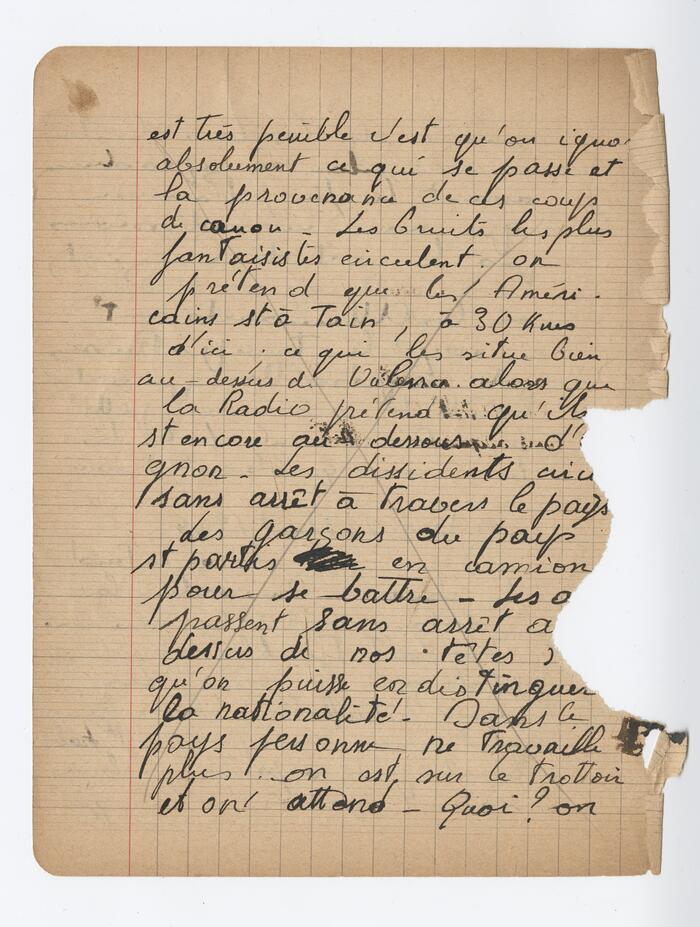 est très penible c'est qu'on igno
absolument ce qui se passe et
la provenance de ces coup
de canon - Les bruits les plus
fantaisistes circulent. on
prétend que les Améri-
cains st à Tain, à 30 Kms
d'ici. ce qui les situe bien
au-dessus de Valence. alors que
la Radio prétend qu'ils
st encore au dessous d'
gnon - Les dissidents circ
sans arrêt à travers le pays
des garçons du pays
st partis en camion
pour se battre - Les a
passent sans arrêt a
dessus de nos têtes s
qu'on puisse en distinguer
la nationalité - Dans le
pays personne ne travaille
plus.. on est sur le trottoir
et on attend - Quoi? on